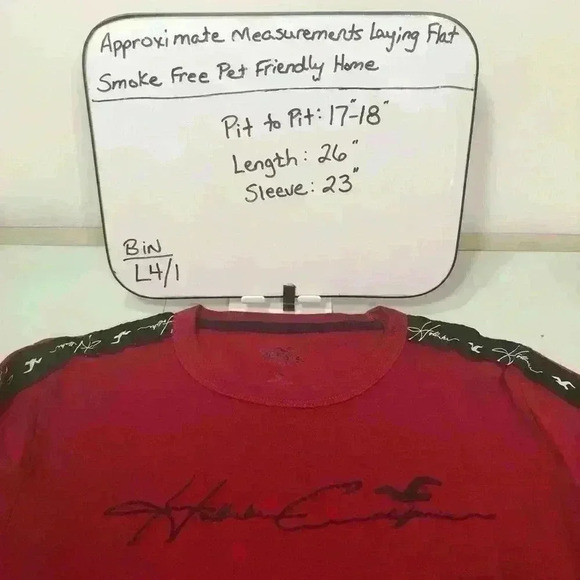 Approximate Measurements Laying Flat
Smoke Free Pet Friendly Home
Pit to Pit: 17"-18"
Length: 26"
Sleeve: 23"
BIN
L4/1